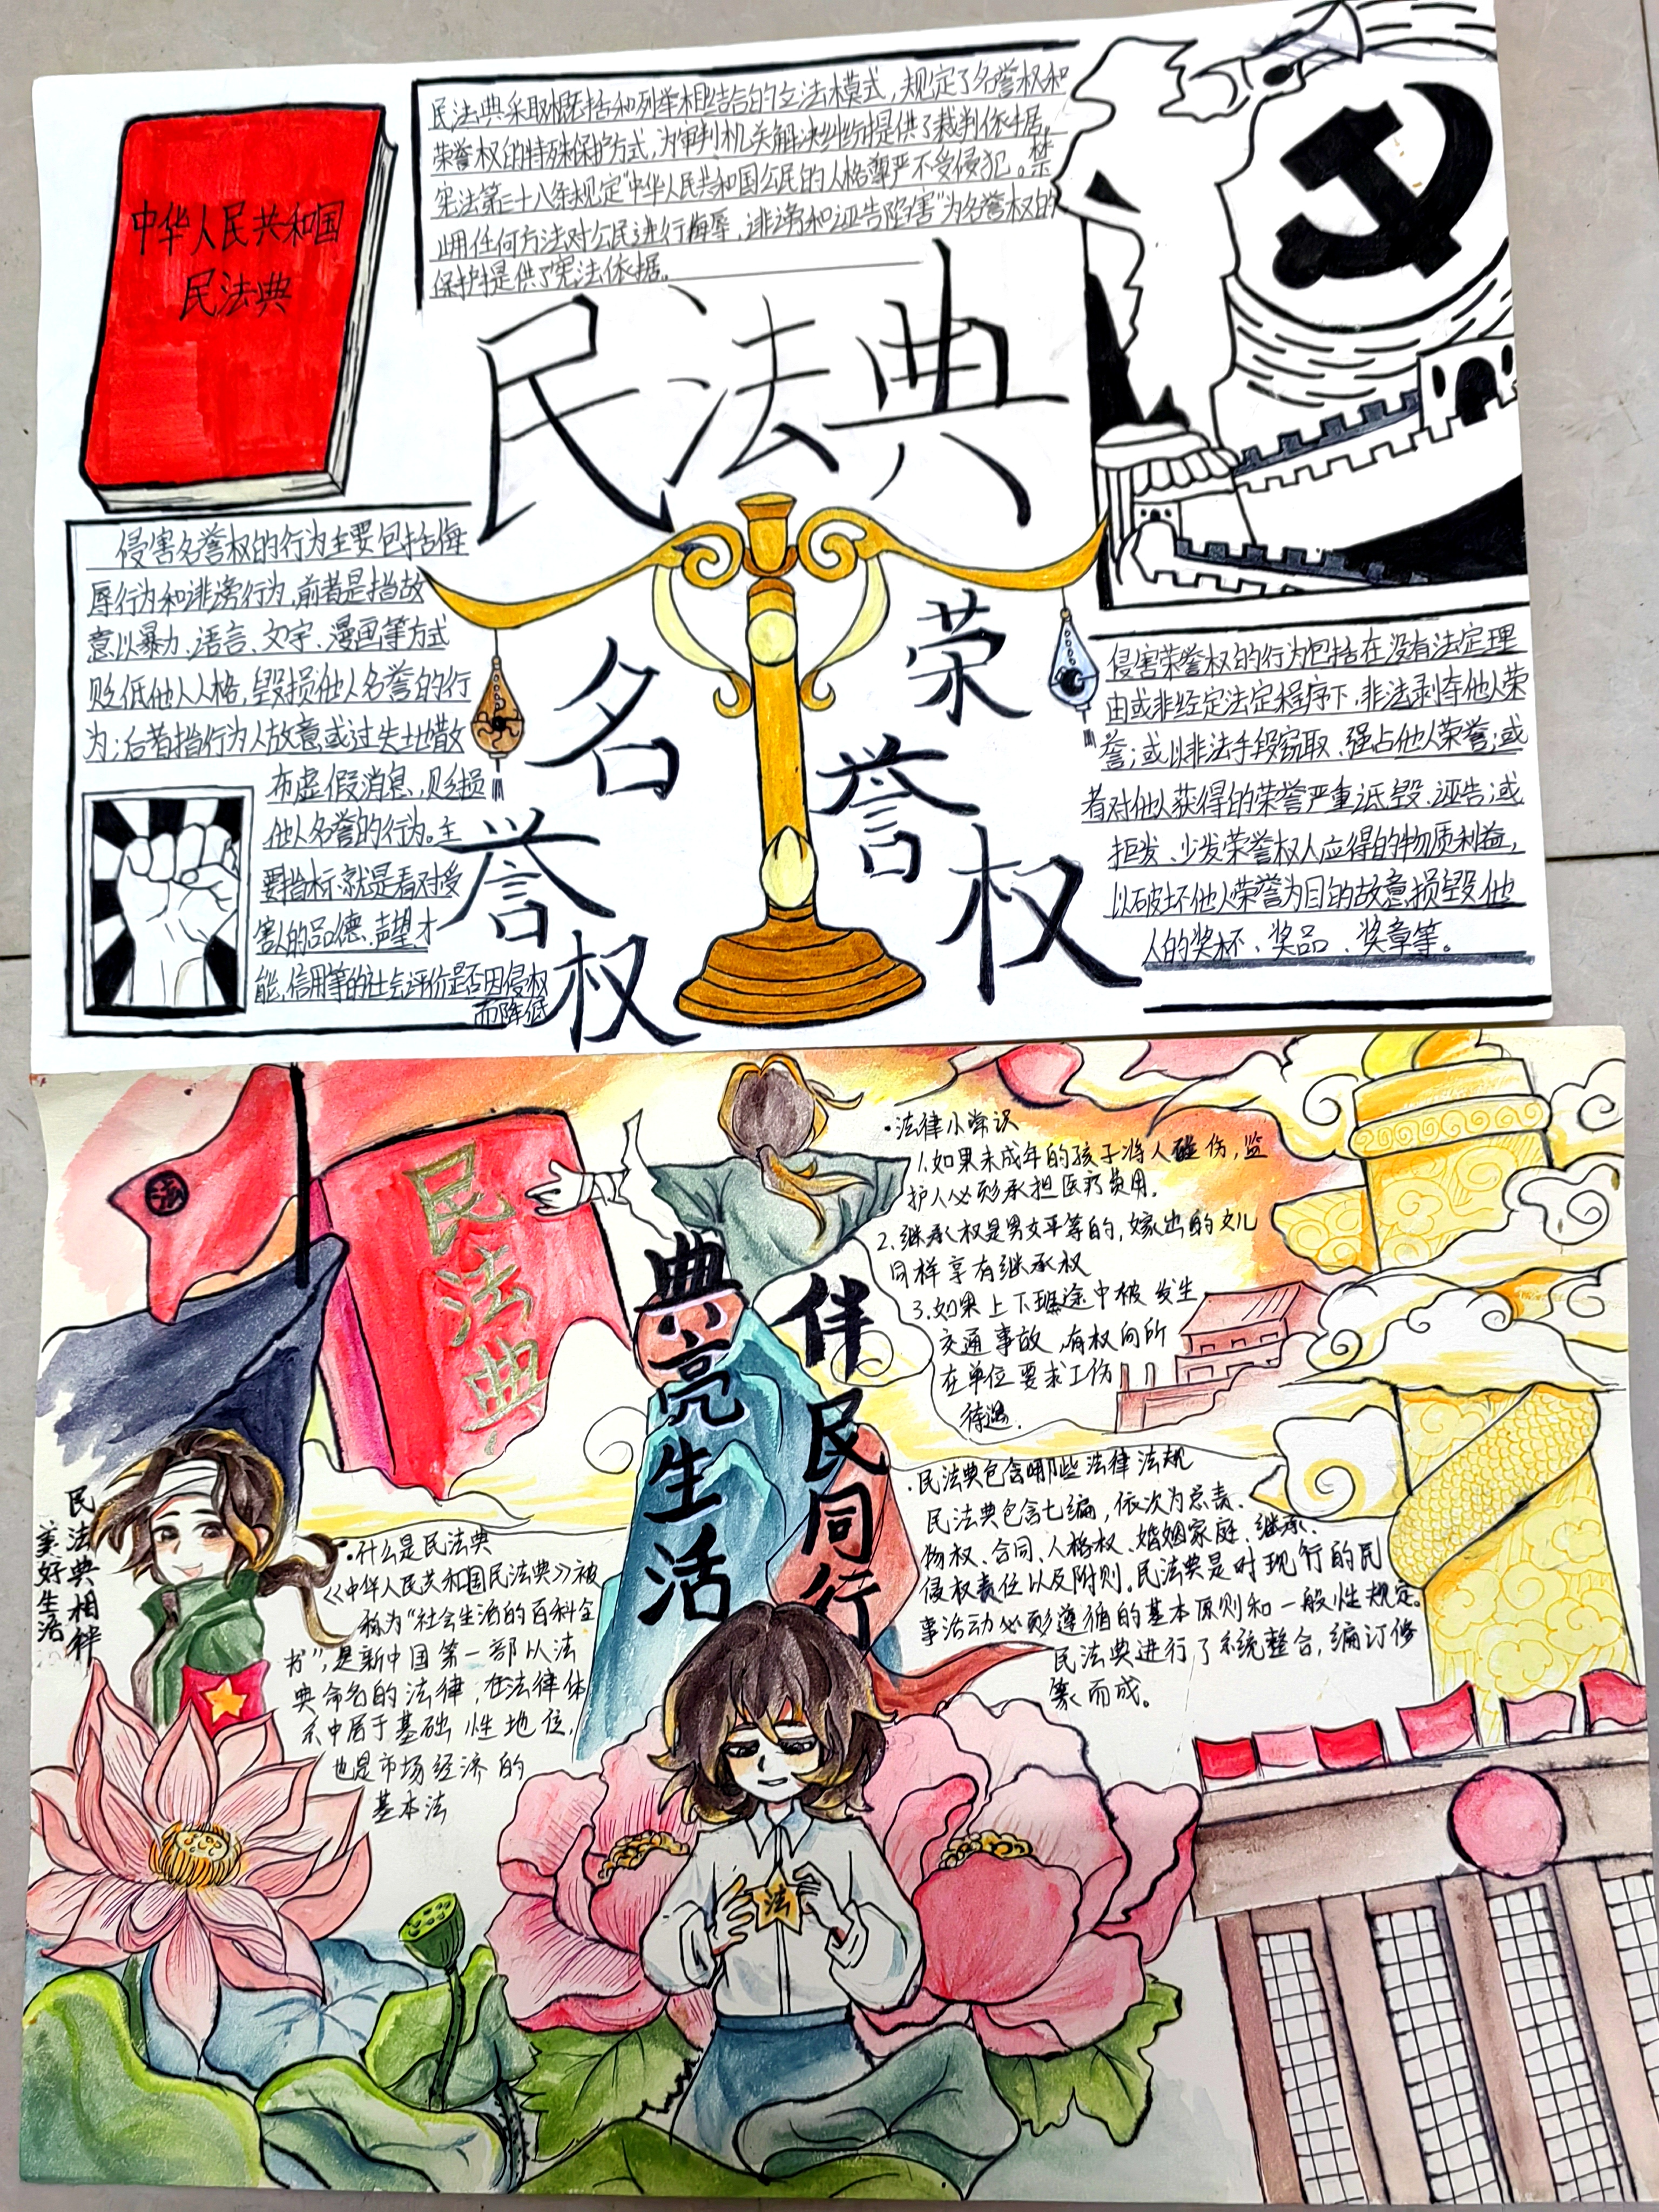 中华人民共和国
民法典
民法典采取概括和列举相结合的立法模式，规定了名誉权和
荣誉权的特殊保护方式，为审判机关解决纠纷提供了裁判依据。
宪法第三十八条规定“中华人民共和国公民的人格尊严不受侵犯。禁
止用任何方法对公民进行侮辱，诽谤和诬告陷害”为名誉权的
保护提供了宪法依据。
民法典
名誉权
荣誉权
侵害名誉权的行为主要包括侮
辱行为和诽谤行为，前者是指故
意以暴力、语言、文字、漫画等方式
贬低他人人格，毁损他人名誉的行
为；后者指行为人故意或过失地散
布虚假消息，贬损
他人名誉的行为。主
要指标就是看对受
害人的品德、声望、才
能、信用等的社会评价是否因侵权
而降低
侵害荣誉权的行为包括在没有法定理
由或非经定法定程序下，非法剥夺他人荣
誉；或以非法手段窃取、强占他人荣誉；或
者对他人获得的荣誉严重诋毁、诬告；或
拒发、少发荣誉权人应得的物质利益，
以破坏他人荣誉为目的故意损毁他
人的奖杯、奖品、奖章等。
法
民法典
典亮生活
伴民同行
·法律小常识
1.如果未成年的孩子将人碰伤，监
护人必须承担医疗费用。
2.继承权是男女平等的，嫁出的女儿
同样享有继承权
3.如果上下班途中被发生
交通事故，有权向所
在单位要求工伤
待遇.
·民法典包含哪些法律法规
民法典包含七编，依次为总责、
物权、合同、人格权、婚姻家庭、继承、
侵权责任以及附则。民法典是对现行的民
事活动必须遵循的基本原则和一般性规定。
民法典进行了系统整合，编订修
纂而成。
民法典相伴
美好生活
·什么是民法典
《中华人民共和国民法典》被
称为“社会生活的百科全
书”，是新中国第一部以法
典命名的法律，在法律体
系中居于基础性地位，
也是市场经济的
基本法
法